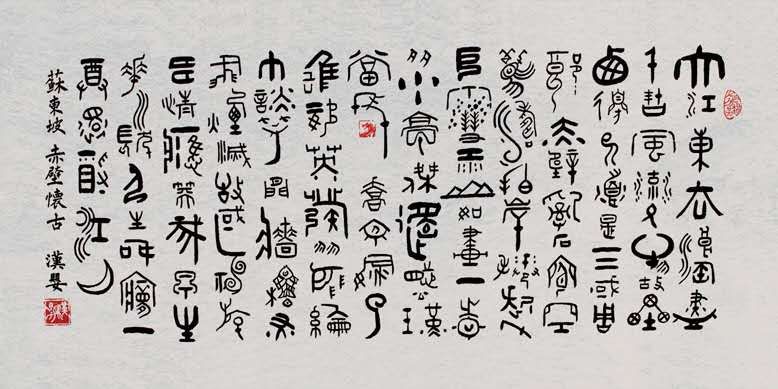 大江東去浪淘盡
千古風流人物故壘
西邊人道是三國周
郎赤壁亂石穿空
驚濤拍岸捲起千
堆雪江山如畫一時
多少豪傑遙想公瑾
當年小喬初嫁了
雄姿英發羽扇綸
巾談笑間檣櫓灰
飛煙滅故國神遊
多情應笑我早生
華髮人生如夢一
尊還酹江月
蘇東坡 赤壁懷古 漢嬰